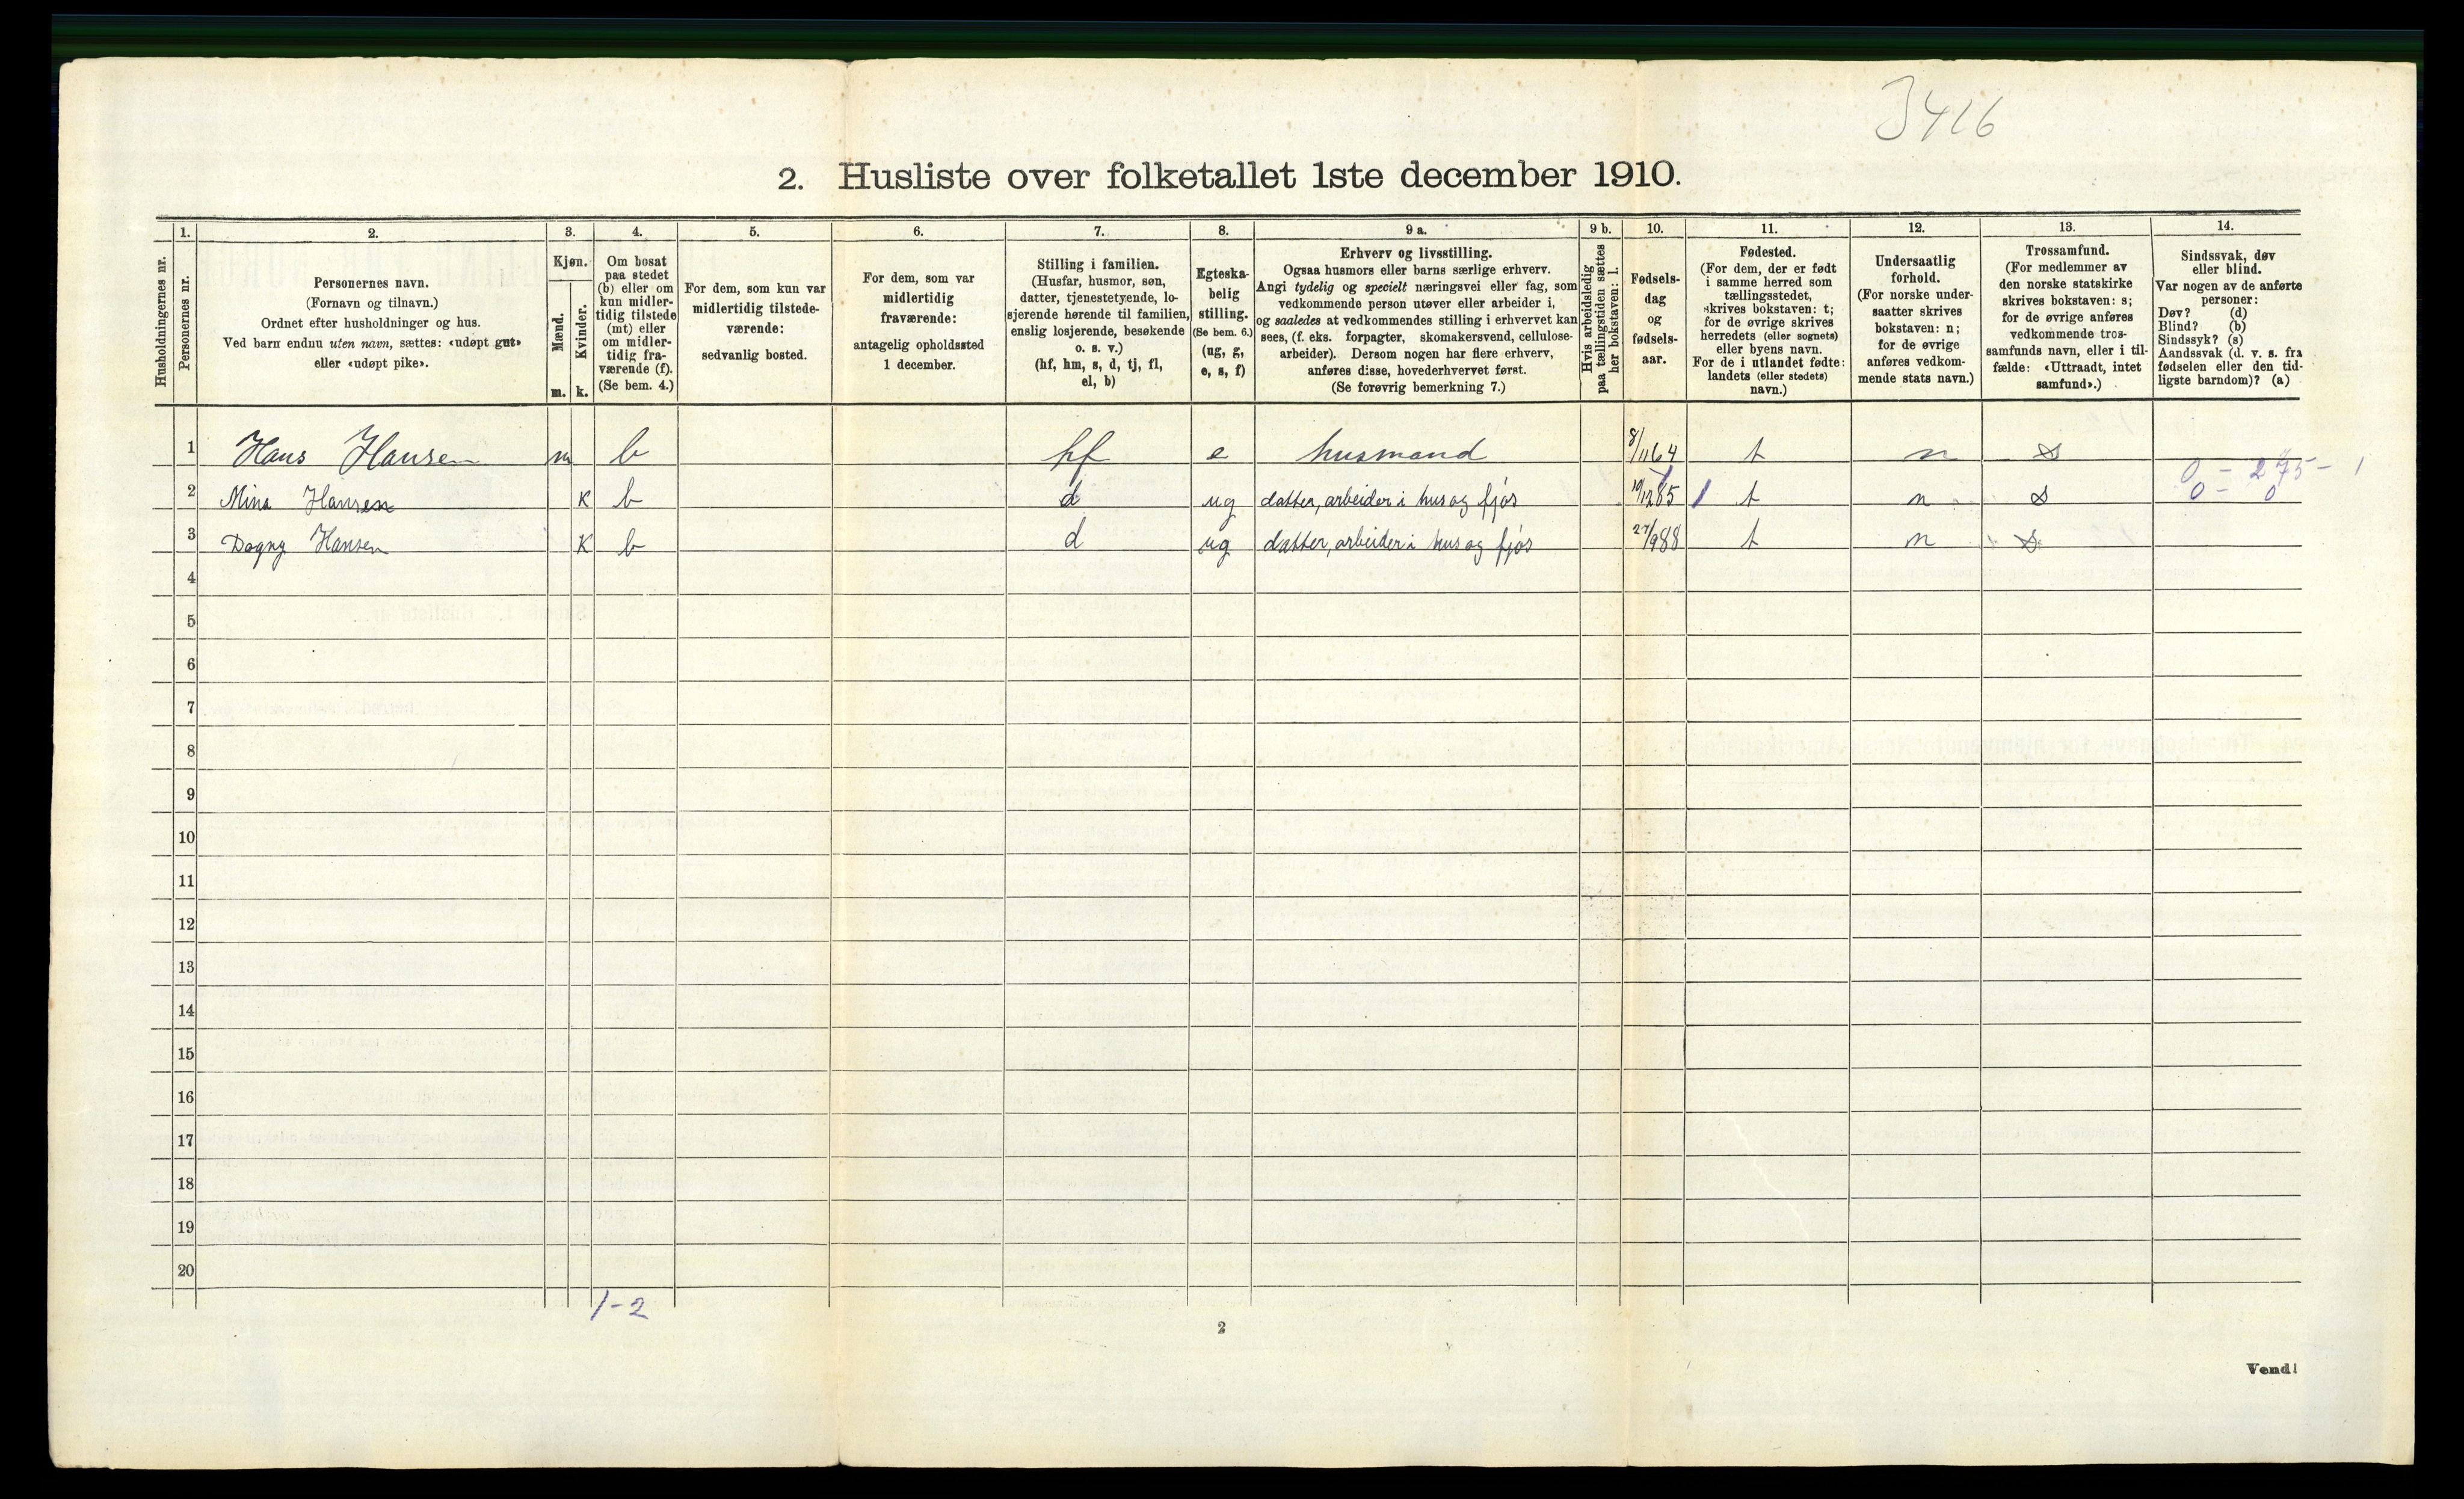 3416
2. Husliste over folketallet 1ste december 1910.
Husholdningernes nr.
1.
Personernes nr.
2.
Personernes navn.
(Fornavn og tilnavn.)
Ordnet efter husholdninger og hus.
Ved barn endnu uten navn, sættes: «udøpt gut»
eller «udøpt pike».
3.
Kjøn.
Mænd.
m.
Kvinder.
k.
4.
Om bosat
paa stedet
(b) eller om
kun midler-
tidig tilstede
(mt) eller
om midler-
tidig fra-
værende (f).
(Se bem. 4.)
5.
For dem, som kun var
midlertidig tilstede-
værende:
sedvanlig bosted.
6.
For dem, som var
midlertidig
fraværende:
antagelig opholdssted
1 december.
7.
Stilling i familien.
(Husfar, husmor, søn,
datter, tjenestetyende, lo-
sjerende hørende til familien,
enslig losjerende, besøkende
o. s. v.)
(hf, hm, s, d, tj, fl,
el, b)
8.
Egteska-
belig
stilling.
(Se bem. 6.)
(ug, g,
e, s, f)
9 a.
Erhverv og livsstilling.
Ogsaa husmors eller barns særlige erhverv.
Angi tydelig og specielt næringsvei eller fag, som
vedkommende person utøver eller arbeider i,
og saaledes at vedkommendes stilling i erhvervet kan
sees, (f. eks. forpagter, skomakersvend, cellulose-
arbeider). Dersom nogen har flere erhverv,
anføres disse, hovederhvervet først.
(Se forøvrig bemerkning 7.)
9 b.
Hvis arbeidsledig
paa tællingstiden sættes
her bokstaven: l.
10.
Fødsels-
dag
og
fødsels-
aar.
11.
Fødested.
(For dem, der er født
i samme herred som
tællingsstedet,
skrives bokstaven: t;
for de øvrige skrives
herredets (eller sognets)
eller byens navn.
For de i utlandet fødte:
landets (eller stedets)
navn.)
12.
Undersaatlig
forhold.
(For norske under-
saatter skrives
bokstaven: n;
for de øvrige
anføres vedkom-
mende stats navn.)
13.
Trossamfund.
(For medlemmer av
den norske statskirke
skrives bokstaven: s;
for de øvrige anføres
vedkommende tros-
samfunds navn, eller i til-
fælde: «Uttraadt, intet
samfund».)
14.
Sindssvak, døv
eller blind.
Var nogen av de anførte
personer:
Døv? (d)
Blind? (b)
Sindssyk? (s)
Aandssvak (d. v. s. fra
fødselen eller den tid-
ligste barndom)? (a)
1 Hans Hansen m b hf e husmand 8/11 64 t n s
0 - 275 - 1
2 Mina Hansen K b d ug datter, arbeider i hus og fjøs 10/12 85 t n s 0 - 0
3 Dagny Hansen K b d ug datter, arbeider i hus og fjøs 27/9 88 t n s
4
5
6
7
8
9
10
11
12
13
14
15
16
17
18
19
20
1-2
2
Vend!